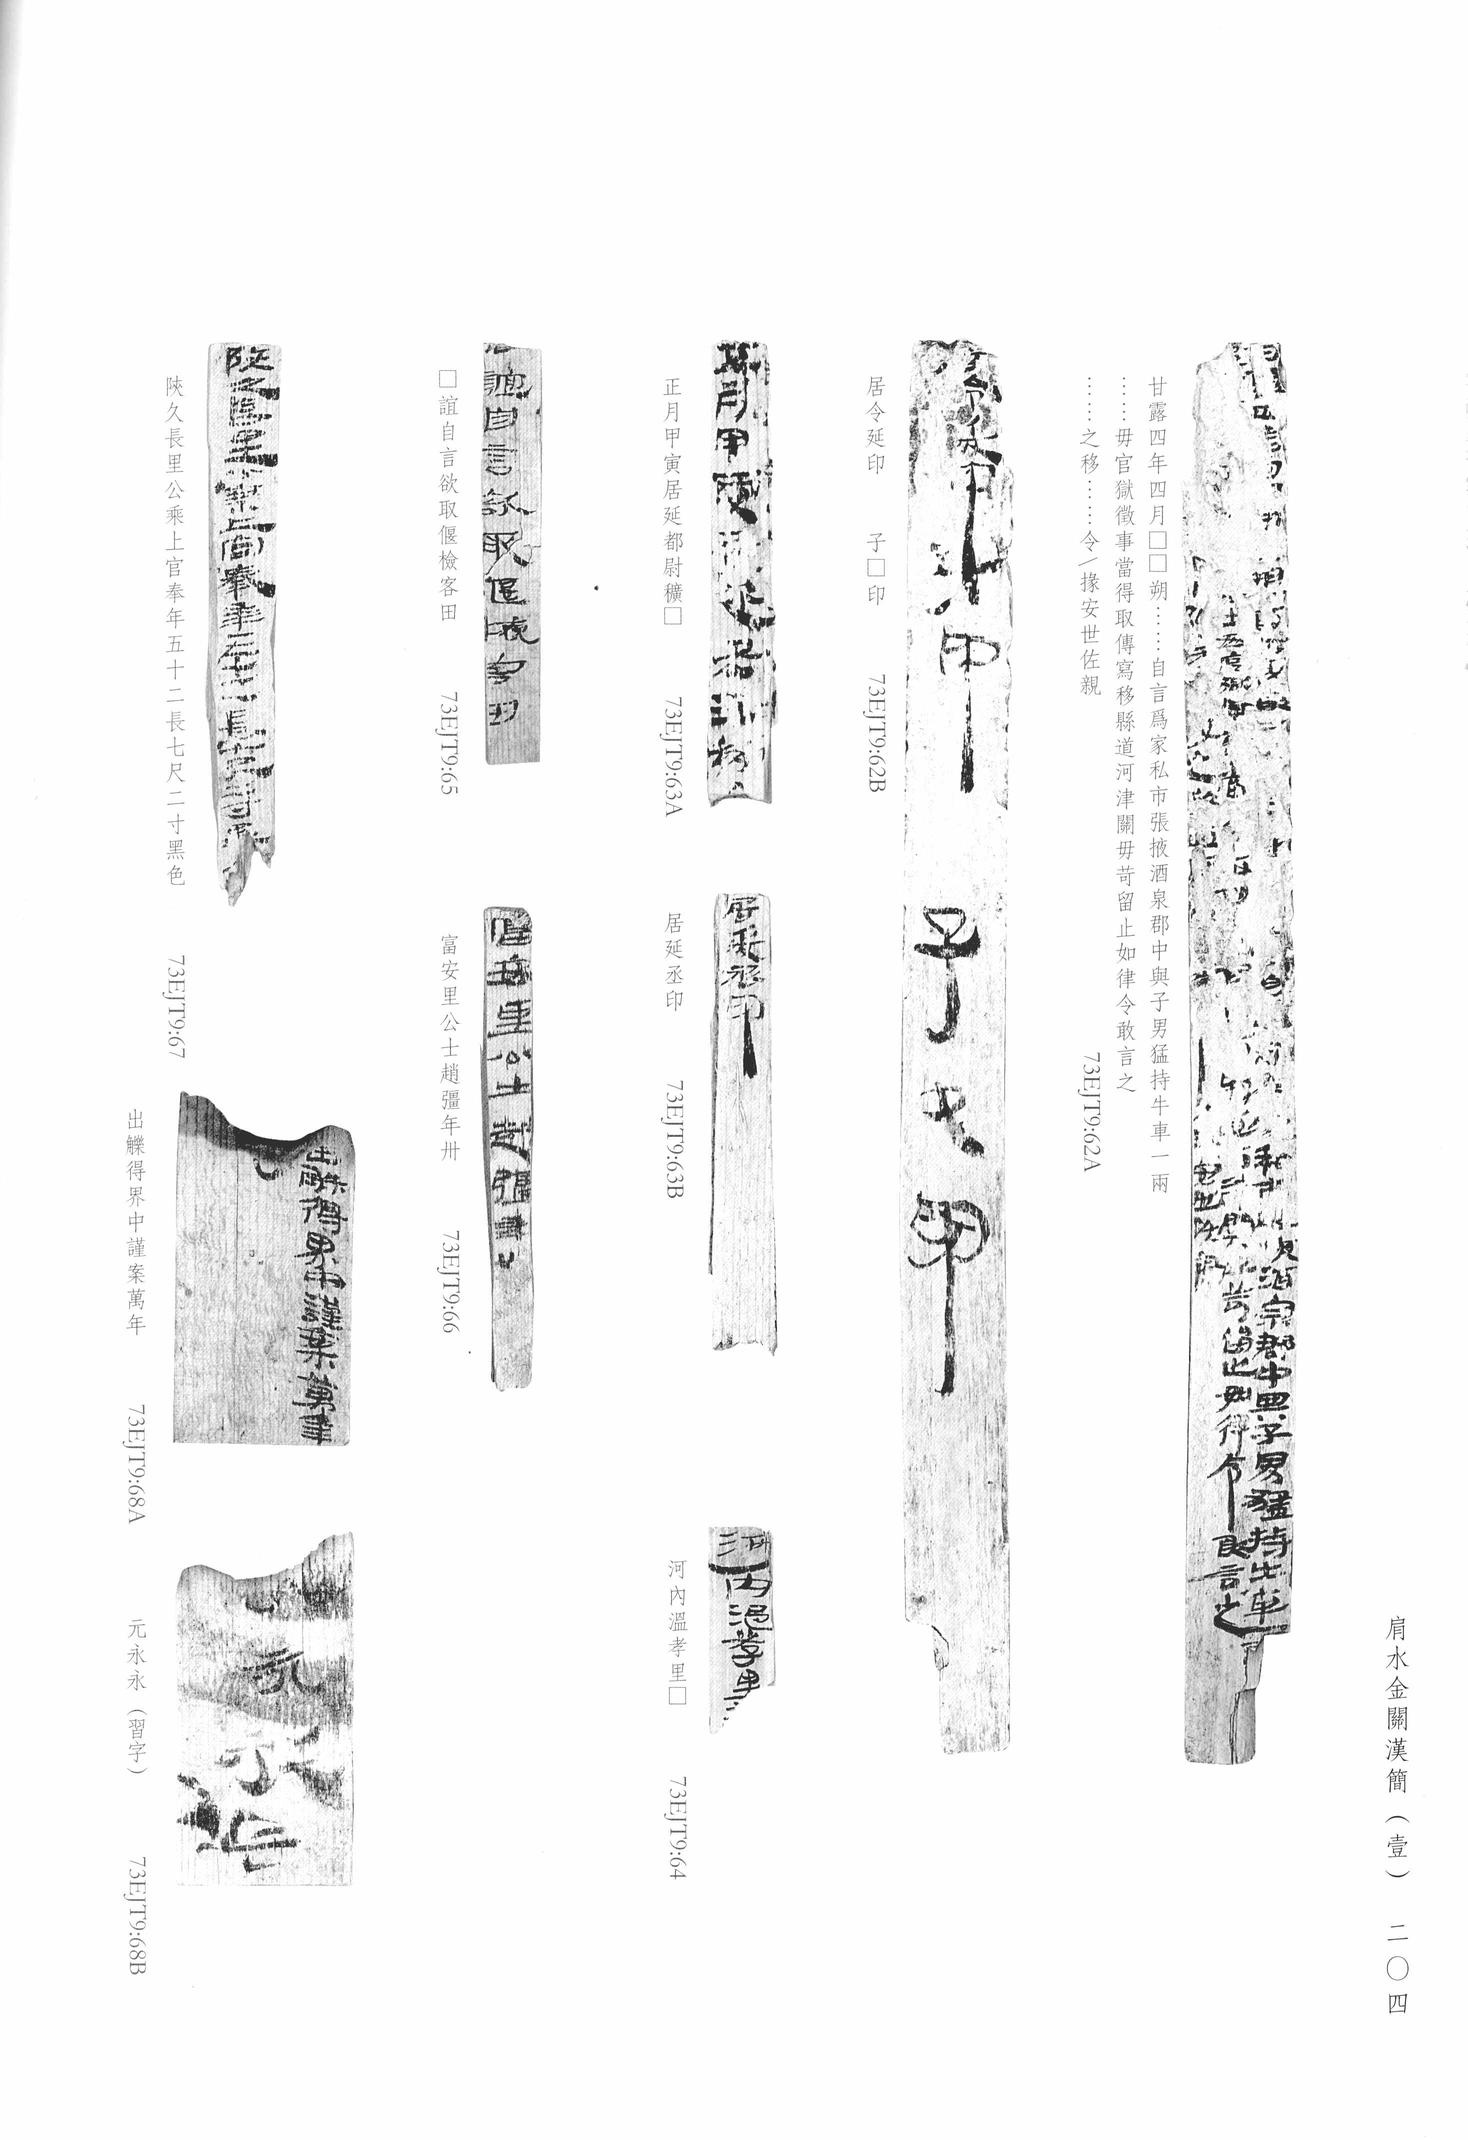 肩水金關漢簡（壹） 二〇四
甘露四年四月□□朔……自言爲家私市張掖酒泉郡中與子男猛持牛車一兩
……毋官獄徵事當得取傳寫移縣道河津關毋苛留止如律令敢言之
……之移……令／掾安世佐親 73EJT9:62A
居令延印 子□印 73EJT9:62B
正月甲寅居延都尉穬□ 73EJT9:63A
居延丞印 73EJT9:63B
河內溫孝里□ 73EJT9:64
□誼自言欲取偃檢客田 73EJT9:65
富安里公士趙彊年卅 73EJT9:66
陜久長里公乘上官奉年五十二長七尺二寸黑色 73EJT9:67
出觻得界中謹案萬年 73EJT9:68A
元永永（習字） 73EJT9:68B